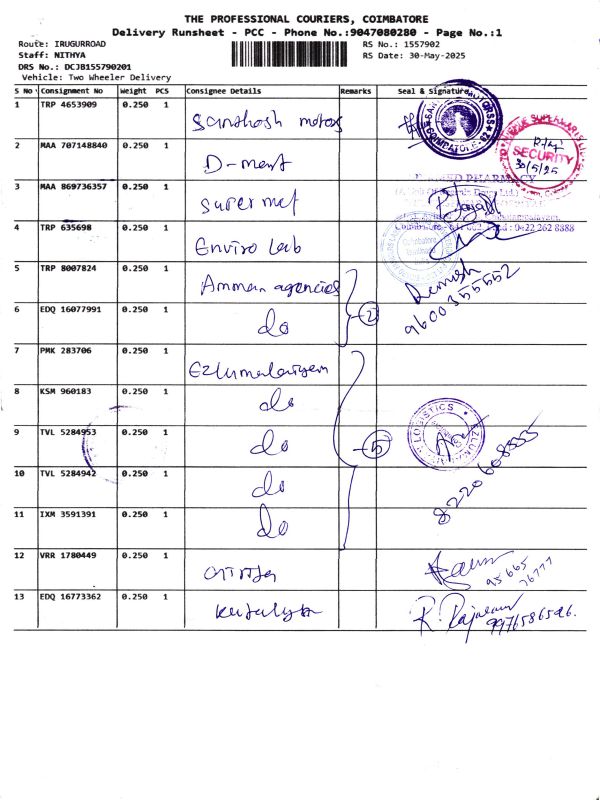 THE PROFESSIONAL COURIERS, COIMBATORE
Delivery Runsheet - PCC - Phone No.:9047080280 - Page No.:1
Route: IRUGURROAD
RS No.: 1557902
Staff: NITHYA
RS Date: 30-May-2025
DRS No.: DCJB155790201
Vehicle: Two Wheeler Delivery
S No Consignment No Weight PCS Consignee Details Remarks Seal & Signature
1 TRP 4653909 0.250 1 Santhosh motors
2 MAA 707148840 0.250 1 D-mart
SECURITY
30/5/25
3 MAA 869736357 0.250 1 Supermet
PHARMACY
4 TRP 635698 0.250 1 Enviro Lab
0422 262 8888
5 TRP 8007824 0.250 1 Amman agencies
6 EDQ 16077991 0.250 1 do 2
Ramesh
9600355552
7 PMK 283706 0.250 1
8 KSM 960183 0.250 1 do
9 TVL 5284953 0.250 1 do 5
LOGISTICS
10 TVL 5284942 0.250 1 do
8220608555
11 IXM 3591391 0.250 1 do
12 VRR 1780449 0.250 1
95665
76777
13 EDQ 16773362 0.250 1
R. Rajaram
9976586526.